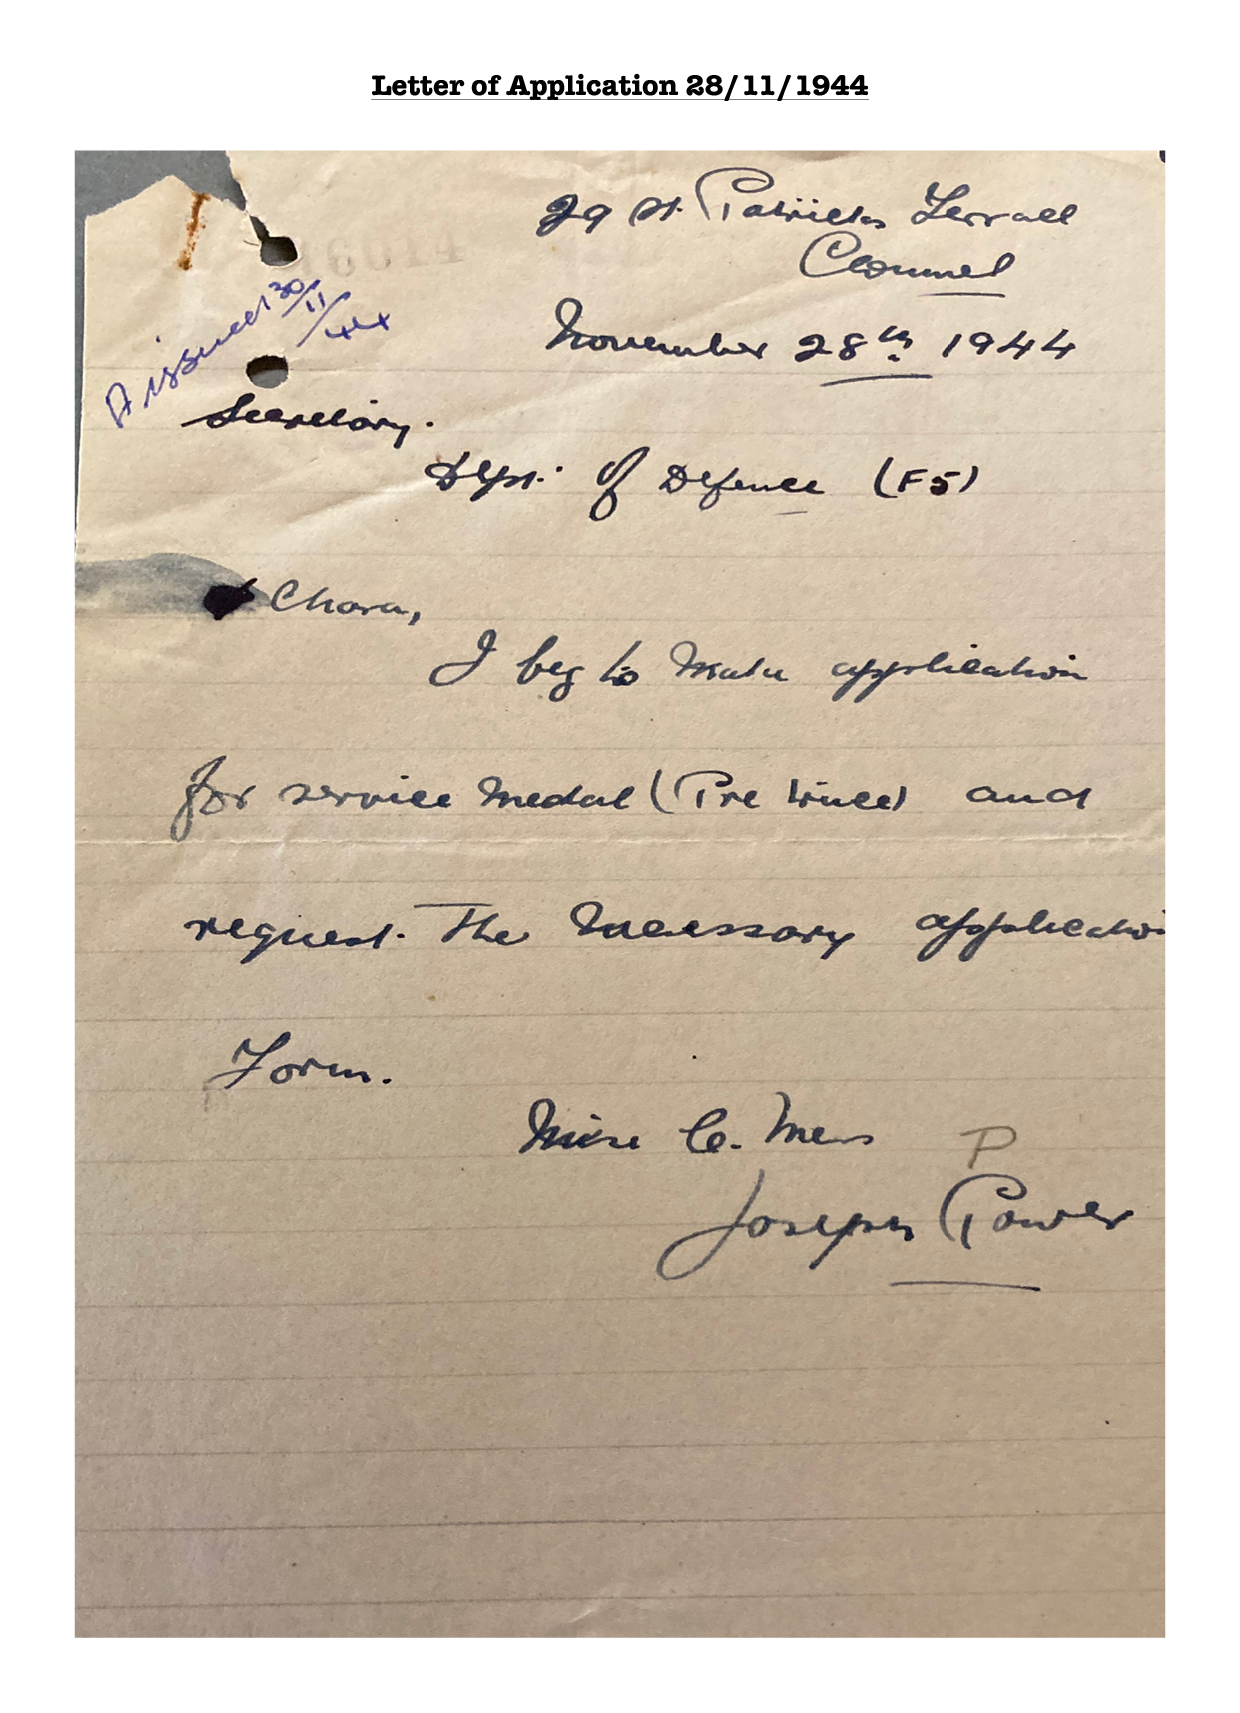 Letter of Application 28/11/1944
29 St. Patricks Terrace
Clonmel
November 28th 1944
issued 30/11/44
Secretary.
Dept. of Defence (F5)
A Chara,
I beg to make application
for service medal (Pre Truce) and
request. The necessary applicatio
Form.
Mise le. Meas
P
Joseph Power